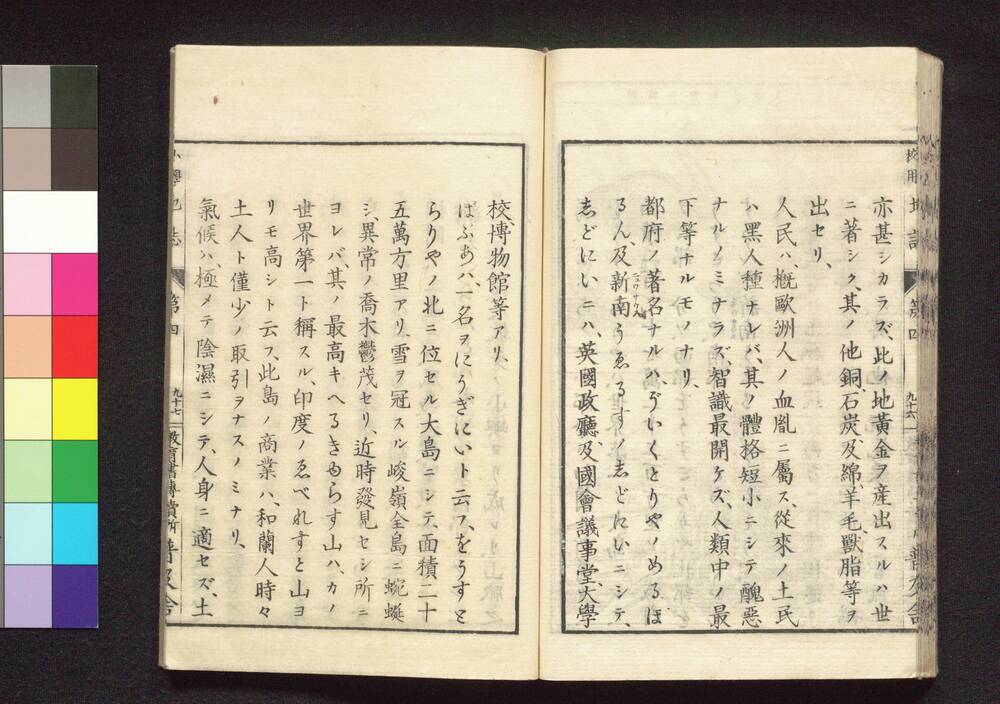 亦甚シカラズ、此ノ地黃金ヲ產出スルハ世
ニ著シク、其ノ他銅、石炭、及、綿、羊毛、獸脂等ヲ
出セリ、
人民ハ、概歐洲人ノ血胤ニ屬ス、從來ノ土民
ハ黑人種ナレバ、其ノ體格短小ニシテ醜惡
ナルノミナラズ、智識最開ケズ、人類中ノ最
下等ナルモノナリ、
都府ノ著名ナルハ、ゔいくとりやノめるほ
るん、及、新南うゑるすノしどにいニシテ、
しどにいニハ、英國政廳、及、國會議事堂、大學
校用 地誌 第四 九十六 普及舍
校、博物館等アリ、
ぱぷあハ一名ヲにうぎにいト云フ、をうすと
らりやノ北ニ位セル大島ニシテ、面積二十
五萬方里アリ、雪ヲ冠スル峻嶺全島ニ蜿蜒
シ、異常ノ喬木鬱茂セリ、近時發見セシ所ニ
ヨレバ、其ノ最高キへるきゆらす山ハ、カノ
世界第一ト稱スル、印度ノゑべれすと山ヨ
リモ高シト云フ、此島ノ商業ハ、和蘭人時々
土人ト僅少ノ取引ヲナスノミナリ、
氣候ハ極メテ陰濕ニシテ、人身ニ適セズ、土
第四 九十七 教育書專賣所 普及舍